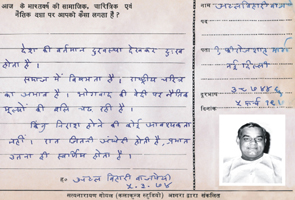 आज के भारतवर्ष की सामाजिक, चारित्रिक एवं
नैतिक दशा पर आपको कैसा लगता है ?
देश की वर्तमान दुरवस्था देखकर दुःख
होता है ।
समाज में विषमता है । राष्ट्रीय चरित्र
का अभाव है । भोगवाद की वेदी पर नैतिक
मूल्यों की बलि चढ़ रही है ।
किंतु निराश होने की कोई आवश्यकता
नहीं । रात जितनी अंधेरी होती है, प्रभात
उतना ही होता है ।
ह० अटल बिहारी वाजपेयी
५.३.७४
नाम अटल बिहारी वाजपेयी
पता १ फीरोजशाह मार्ग
नई दिल्ली
दूरभाष
दिनांक ५ मार्च
सत्यनारायण गोयल (कलाकुन्ज स्टूडियो) आगरा द्वारा संकलित